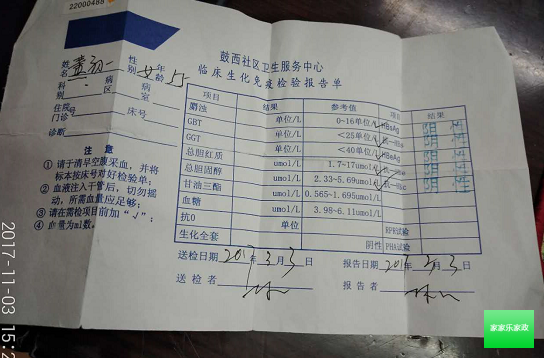 22000485
鼓西社区卫生服务中心
临床生化免疫检验报告单
姓名
性别 女 年龄
科别 病区 病室
住院号
门诊 床号
诊断
注 意
① 请于清早空腹采血，并将
标本按床号对好检验单；
② 血液注入干管后，切勿摇
动，所需血量应足够；
③ 请在需检项目前加“√”；
④ 血量为ml数。
项目 结果 参考值 项目 结果
单位/L 0~16单位/L HBsAg
GBT 单位/L <25单位/L
GGT 单位/L <40单位/L
总胆红质 umol/L 1.7~17umol/L
总胆固醇 umol/L 2.33~5.69umol/L
甘油三酯 umol/L 0.565~1.695umol/L
血糖 umol/L 3.98~6.11umol/L
抗O 单位 RPR试验
生化全套 阴性 PHA试验
送检日期 2017年3月3日 报告日期 2017年3月3日
送检者 报告者
2017-11-03 15:2
家家乐家政